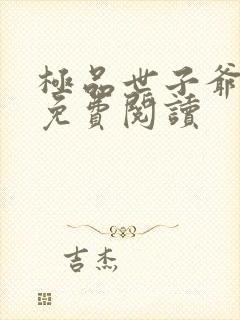 極品世子爺
免費閱讀
吉杰